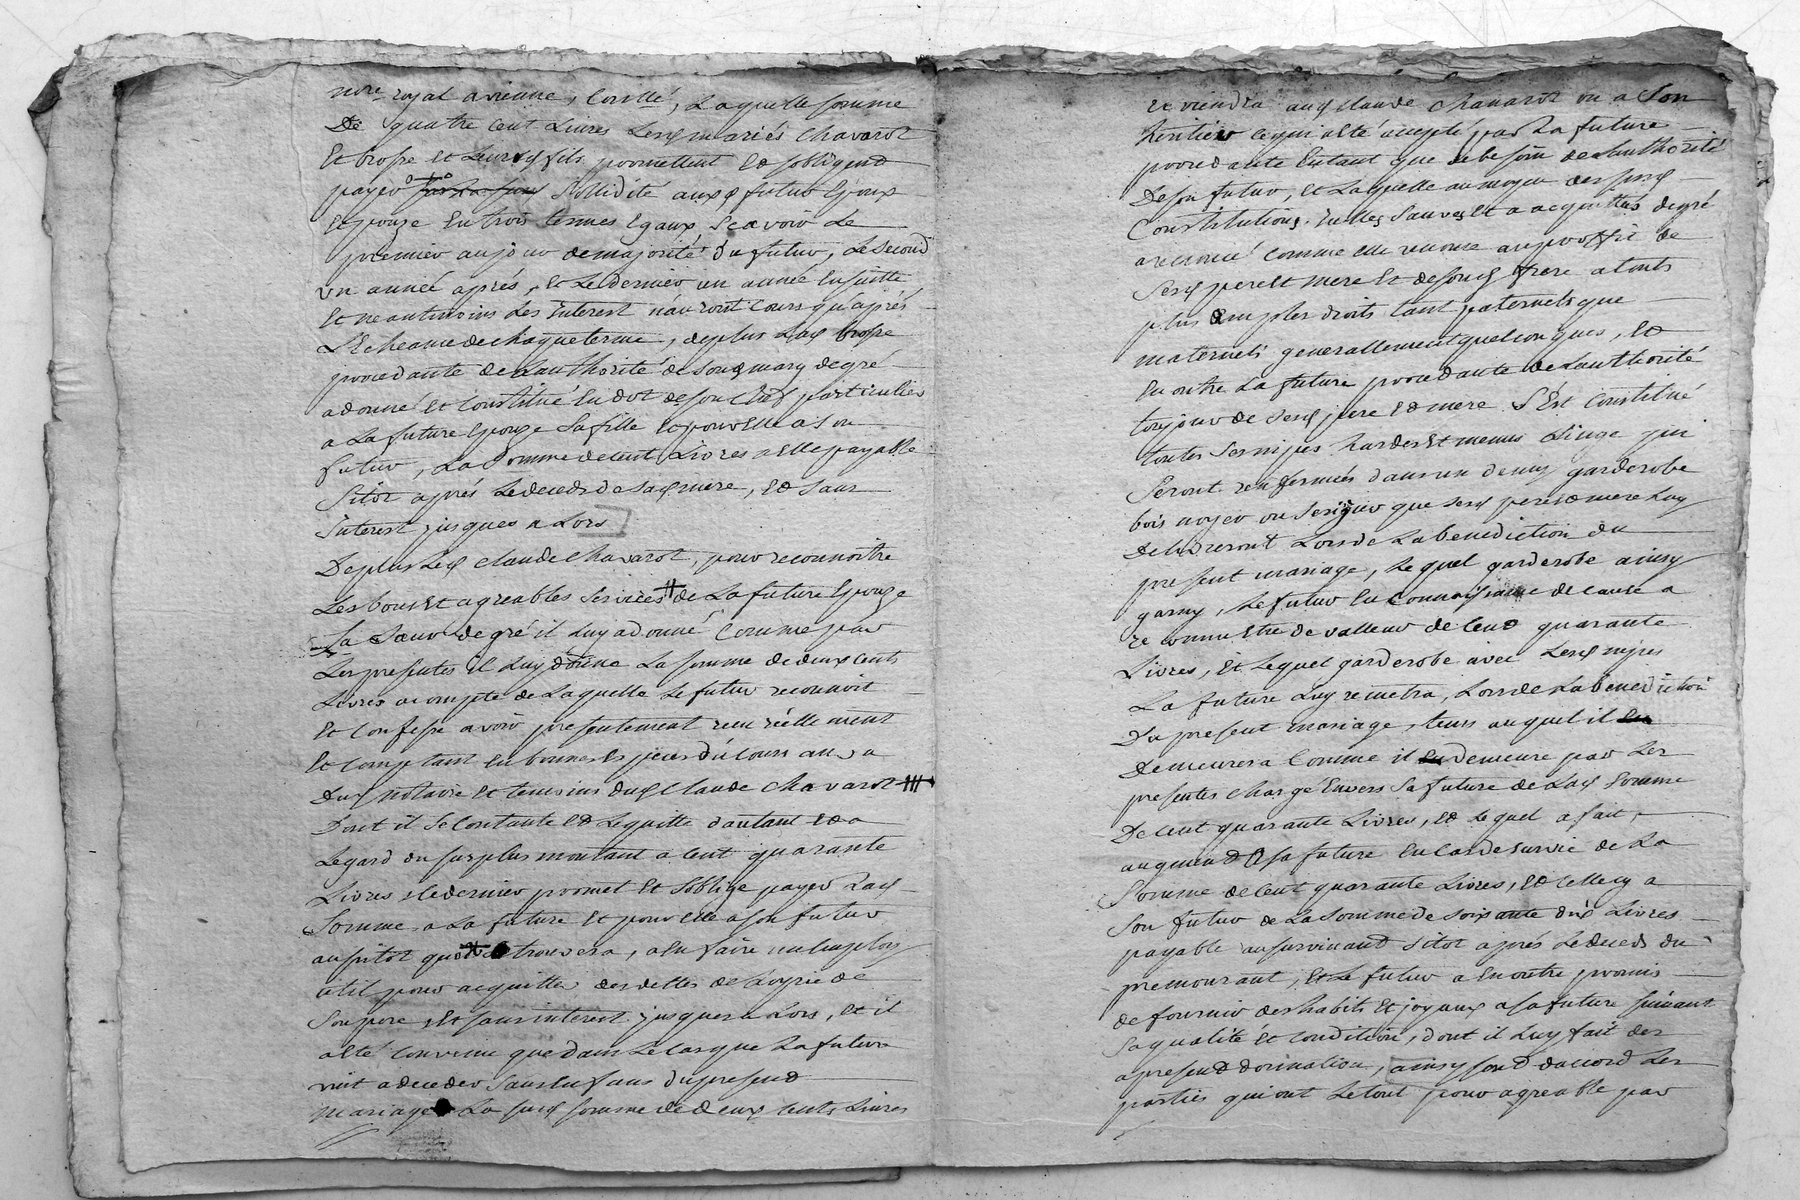 nore royal a vienne, Conllé, Laquelle somme
De quatre Cent Livres Lesd mariés Chavarot
Et brosse et Leursd fils promettent Et sobligent
payer Sollidité auxd futur Epoux
Et epouze En trois termes Egaux, Scavoir Le
premier au jour de majorité du futur, Le Second
un année aprés, Et Le dernier un année Ensuitte
Et neantmoins Les interest n'auront Cours qu'aprés
L'Echeance de chaque terme, de plus Lad brosse
procedante de L'authorité de Sond mary de gré
a donné Et Constitué En dot de son Chef particulier
a La future Epouze Sa fille Et pour Elle a Son
futur, La Somme de cent Livres a Elle payable
Sitot aprés Le deceds de Sad mere, Et Sans
interest jusques a Lors
De plus Led Claude Chavarot, pour reconnoitre
Les bons Et agreables Services de La future Epouze
Sa Sœur de gré il Luy a donné Comme par
Les presentes il Luy donne La somme de deux Cents
Livres a compte de Laquelle Le futur reconnoit
Et Confesse avoir presentement reçu réellement
Et Comptant En bonnes Especes du Cours au va
Dud notaire et temoins dud Claude Chavarot
Dont il Se Contante Et Le quitte dautant Et a
Legard du surplus montant a Cent quarante
Livres Ce dernier promet Et soblige payer Lad
Somme a La future Et pour Elle a son futur
aussitot qu trouvera, a En faire un Employ
util pour acquitter des dettes de hoyrie de
Son pere Et sans interest jusques a Lors, Et il
a Eté Convenu que dans Le Cas que La future
vint a deceder Sans Enfans du present
mariage La susd somme de deux Cents Livres
reviendra aud Claude Chavarot ou a Son
heritier Ce qui a Eté accepté par La future
procedante En tant que de besoin de L'authorité
De son futur, Et Laquelle au moyen des susd
Constitutions Elles Sauves Et a acquittés de gré
a renoncé Comme elle renonce au proffit de
Sesd pere Et mere Et de Sond frere a touts
plus amples droits tant paternels que
maternels generallement quelconques, Et
En outre La future procedante de L'authorité
toujour de Sesd pere Et mere S'Est Constitué
toutes Ses nipes hardes Et menus Linge qui
Seront renfermés dans un demy garderobe
bois noyer ou Serizier que Sesd pere et mere Luy
Delivreront Lors de La benediction du
present mariage, Le quel garderobe ainsy
garny, Le futur En Connoissance de cause a
reconnu Etre de valleur de Cent quarante
Livres, Et Lequel garderobe avec Lesd nipes
La future Luy remetra, Lors de La benediction
Du present mariage, tems auquel il
Demeurera Comme il demeure par Les
presentes Chargé Envers Sa future de Lad Somme
De Cent quarante Livres, Et Lequel a fait
augment a sa future En Cas de survie de La
Somme de Cent quarante Livres, Et Celle cy a
Son futur de La Somme de Soixante dix Livres
payable au survivant Sitot aprés Le deceds du
premourant, Et Le futur a En outre promis
de fournir des habits Et joyaux a sa future suivant
Sa qualité Et Condition, dont il Luy fait des
apresent donnation, ainsy sont d'accord Les
parties qui ont Le tout pour agreable par